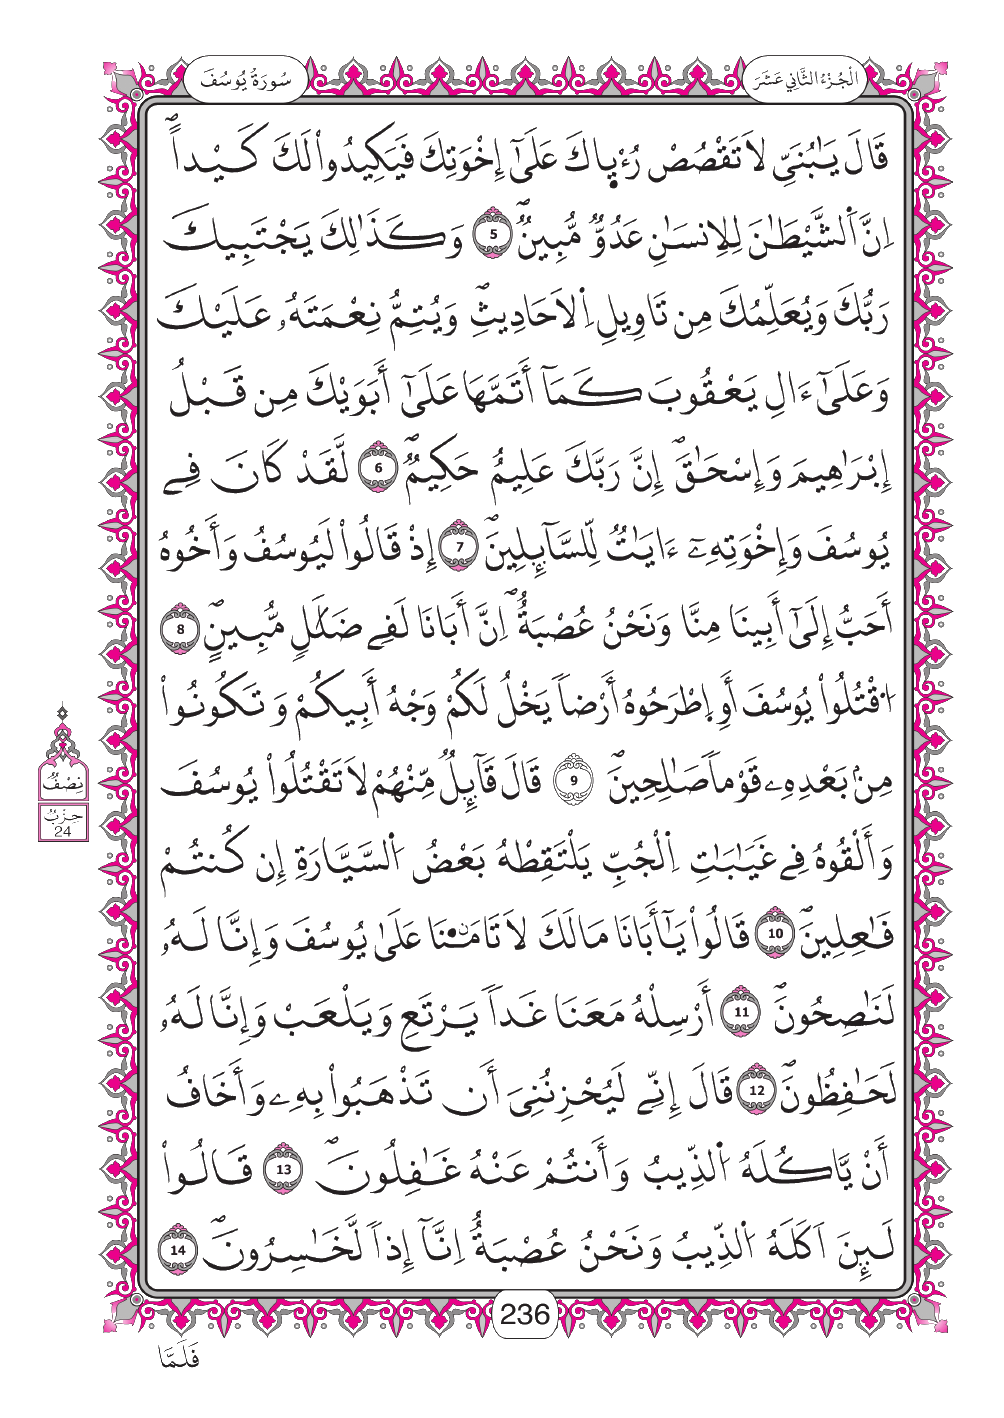 الْجُزْءُ الثَّانِي عَشَرَ
سُورَةُ يُوسُفَ
قَالَ يَٰبُنَيِّ لَا تَقْصُصْ رُءْي۪اكَ عَلَيٰٓ إِخْوَتِكَ فَيَكِيدُواْ لَكَ كَيْداًۖ
اِنَّ اَ۬لشَّيْطَٰنَ لِلِانسَٰنِ عَدُوّٞ مُّبِينٞۖ 5 وَكَذَٰلِكَ يَجْتَبِيكَ
رَبُّكَ وَيُعَلِّمُكَ مِن تَاوِيلِ اِ۬لَاحَادِيثِۖ وَيُتِمُّ نِعْمَتَهُۥ عَلَيْكَ
وَعَلَيٰٓ ءَالِ يَعْقُوبَ كَمَآ أَتَمَّهَا عَلَيٰٓ أَبَوَيْكَ مِن قَبْلُ
إِبْرَٰهِيمَ وَإِسْحَٰقَۖ إِنَّ رَبَّكَ عَلِيمٌ حَكِيمٞۖ 6 لَّقَدْ كَانَ فِے
يُوسُفَ وَإِخْوَتِهِۦٓ ءَايَٰتٞ لِّلسَّآئِلِينَۖ 7 إِذْ قَالُواْ لَيُوسُفُ وَأَخُوهُ
أَحَبُّ إِلَيٰٓ أَبِينَا مِنَّا وَنَحْنُ عُصْبَةٌۖ اِنَّ أَبَانَا لَفِے ضَلَٰلٖ مُّبِينٍۖ 8
اُ۟قْتُلُواْ يُوسُفَ أَوِ اِ۪طْرَحُوهُ أَرْضاٗ يَخْلُ لَكُمْ وَجْهُ أَبِيكُمْ وَتَكُونُواْ
مِنۢ بَعْدِهِۦ قَوْماٗ صَٰلِحِينَۖ 9 قَالَ قَآئِلٞ مِّنْهُمْ لَا تَقْتُلُواْ يُوسُفَ
وَأَلْقُوهُ فِے غَيَٰبَٰتِ اِ۬لْجُبِّ يَلْتَقِطْهُ بَعْضُ اُ۬لسَّيَّارَةِ إِن كُنتُمْ
فَٰعِلِينَۖ 10 قَالُواْ يَٰٓأَبَانَا مَالَكَ لَا تَامَ۬نَّا عَلَىٰ يُوسُفَ وَإِنَّا لَهُۥ
لَنَٰصِحُونَۖ 11 أَرْسِلْهُ مَعَنَا غَداٗ يَرْتَعِ وَيَلْعَبْ وَإِنَّا لَهُۥ
لَحَٰفِظُونَۖ 12 قَالَ إِنِّے لَيُحْزِنُنِيَ أَن تَذْهَبُواْ بِهِۦ وَأَخَافُ
أَنْ يَّاكُلَهُ اُ۬لذِّيبُ وَأَنتُمْ عَنْهُ غَٰفِلُونَۖ 13 قَالُواْ
لَئِنَ اَكَلَهُ اُ۬لذِّيبُ وَنَحْنُ عُصْبَةٌ اِنَّآ إِذاٗ لَّخَٰسِرُونَۖ 14
نِصْفُ
حِزْبٌ
24
236
فَلَمَّا